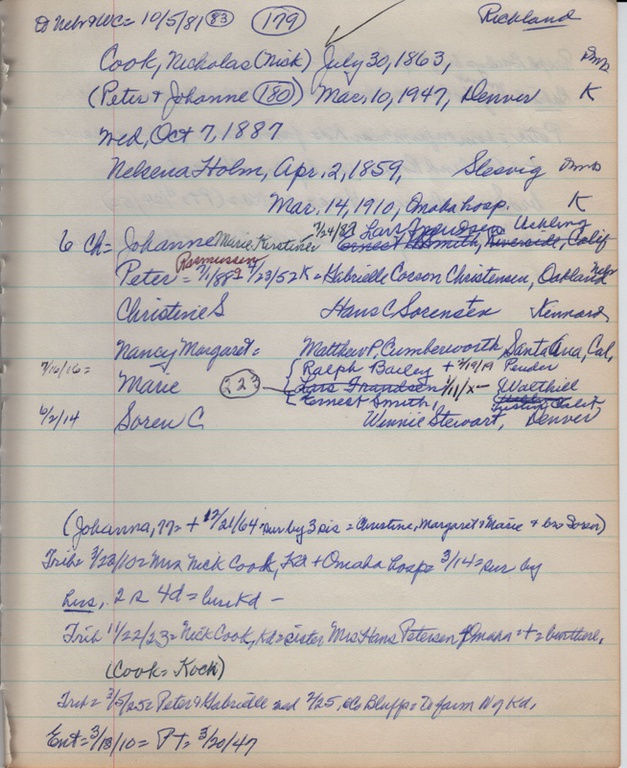 Nebr & WC = 10/5/81 (83) (179) Richland
Cook, Nicholas (Nick) July 30, 1863, Dmk
(Peter + Johanne (180) Mar. 10, 1947, Denver K
Wed, Oct 7, 1887
Nelsena Holm, Apr. 2, 1859, Slesvig Dmk
Mar. 14, 1910, Omaha hosp. K
6 Ch = Johanne Marie Kirstine 7/24/89 Lars Uehling
Ernest Smith, Riverside, Calif
Rasmussen
Peter = 7/1/88 = 7/23/52 K = Gabrielle Cocson Christensen, Oakland Nebr
Christine S Hans C Sorensen Kennard
Nancy Margaret = Matthew P. Cumberworth Santa Ana, Cal.
7/16/16 = Ralph Bailey + 2/19/19 Pender
Marie (223) Lars Frandsen 1/11/x - Walthill
Ernest Smith, Tustin, Calif
6/2/14 Soren C Winnie Stewart, Denver
(Johanna, 77 = + 12/21/64 sur by 3 sis = Christine, Margaret + Marie + bro Soren)
Trib = 3/23/10 = Mrs Nick Cook, Kd + Omaha hosp = 3/14 = sur by
hus, 2 s 4d = bur Kd -
Trib 11/22/23 = Nick Cook, Kd = sister Mrs Hans Petersen, Omaha = + = bur there,
(Cook = Koch)
Trib = 3/5/25 = Peter & Gabrielle md 2/25, Co Bluffs = To farm N of Kd,
Ent = 3/18/10 = PT = 3/20/47